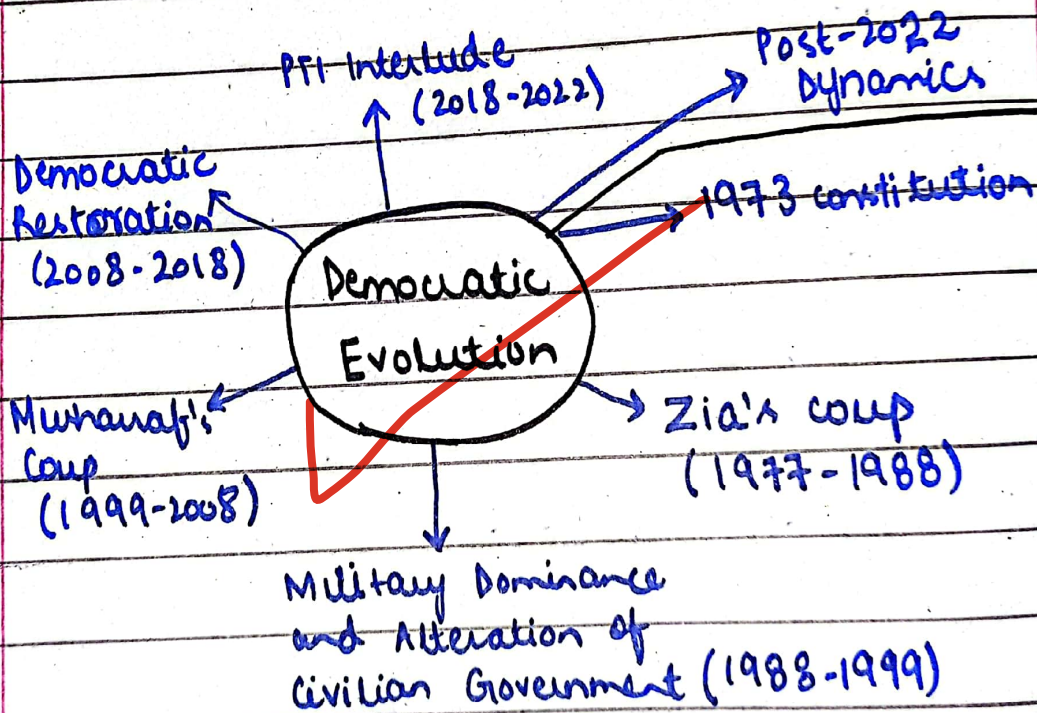 PTI Interlude
(2018-2022)
Post-2022
Dynamics
Democratic
Restoration
(2008-2018)
1973 constitution
Democratic
Evolution
Musharraf's
Coup
(1999-2008)
Zia's coup
(1977-1988)
Military Dominance
and Alteration of
Civilian Government (1988-1999)